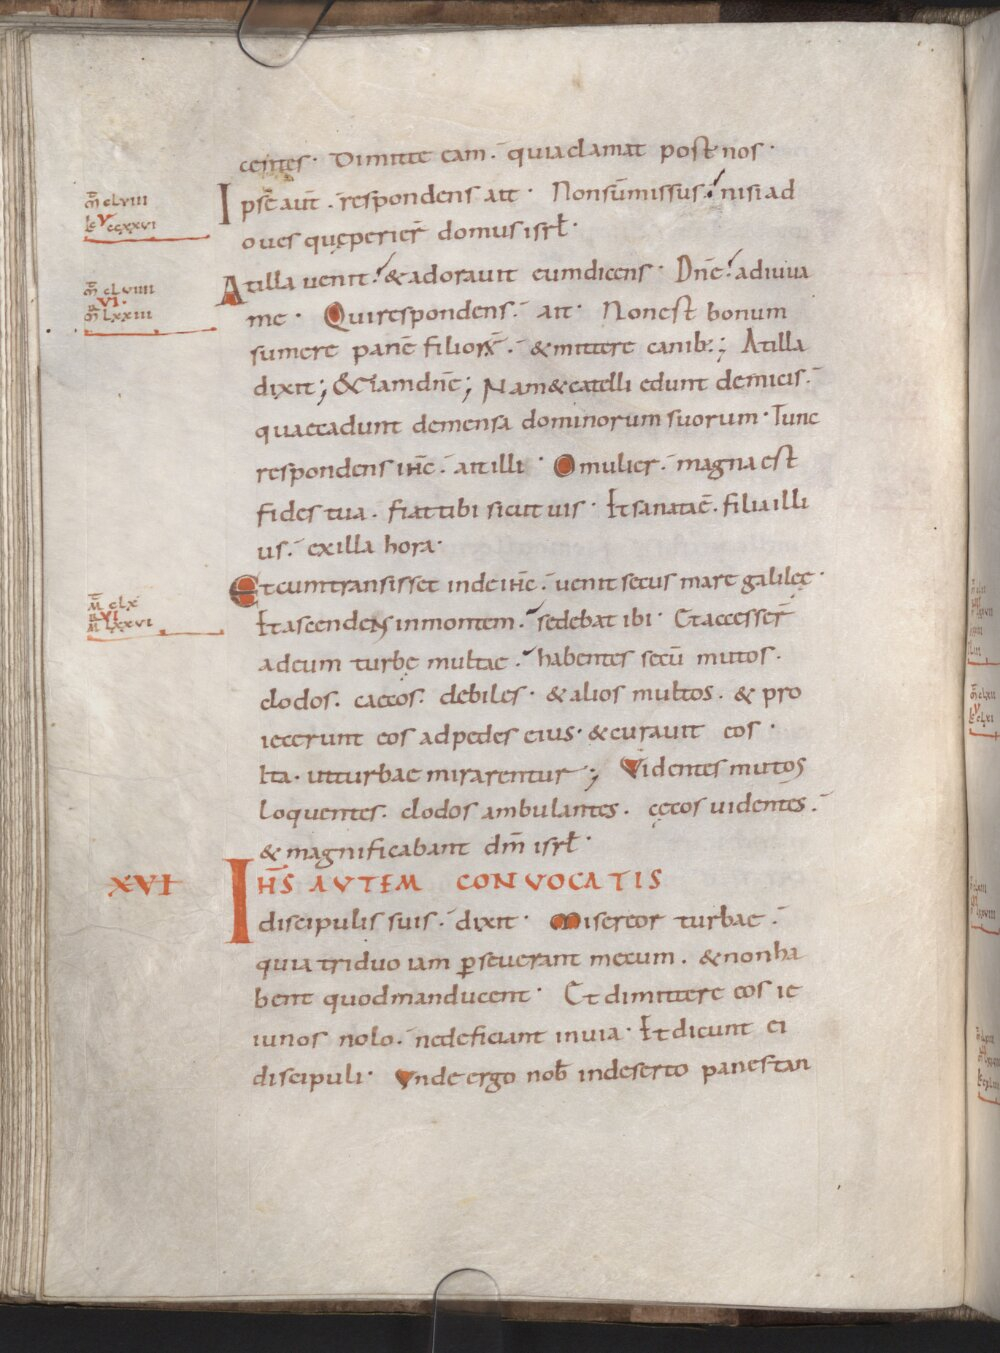 centes· Dimitte eam. quia clamat post nos·
m̄ cLVIII
Ipse aut̄. respondens ait· Non sūmissus. nisi ad
L V ccxxVI
oues quę perier̄ domus isrł.
m̄ cLVIIII
Atilla uenit. & adorauit eum dicens· Dn̄e. adiuua
VI
m̄ LxxIII
me· Qui respondens. ait· Non est bonum
sumere panē filiorꝝ. & mittere canib:; Atilla
dixit; & iam dn̄e; Nam & catelli edunt de micis.
quae cadunt demensa dominorum suorum· Tunc
respondens ihc̄. ait illi· O mulier. magna est
fides tua. fiat tibi sicut uis· Et sanata ē. filia illi
us. ex illa hora·
Et cum transisset inde ihc̄. uenit secus mare galileę·
M̄ cLX
VI
M LXXVI
Et ascendens in montem. sedebat ibi· Et accesser̄
ad eum turbę multae. habentes secū mutos.
clodos. caecos. debiles· & alios multos. & pro
iecerunt eos ad pedes eius· & curauit eos·
Ita. ut turbae mirarentur; Videntes mutos
loquentes. clodos ambulantes. cęcos uidentes.
& magnificabant dm̄ isrł·
XVI
IHS̄ AVTEM CONVOCATIS
discipulis suis. dixit· Misereor turbae.
quia triduo iam ꝑseuerant mecum. & non ha
bent quod manducent· Et dimittere eos ie
iunos nolo. ne deficiant in uia· Et dicunt ei
discipuli· Vnde ergo nob̄ in deserto panes tan